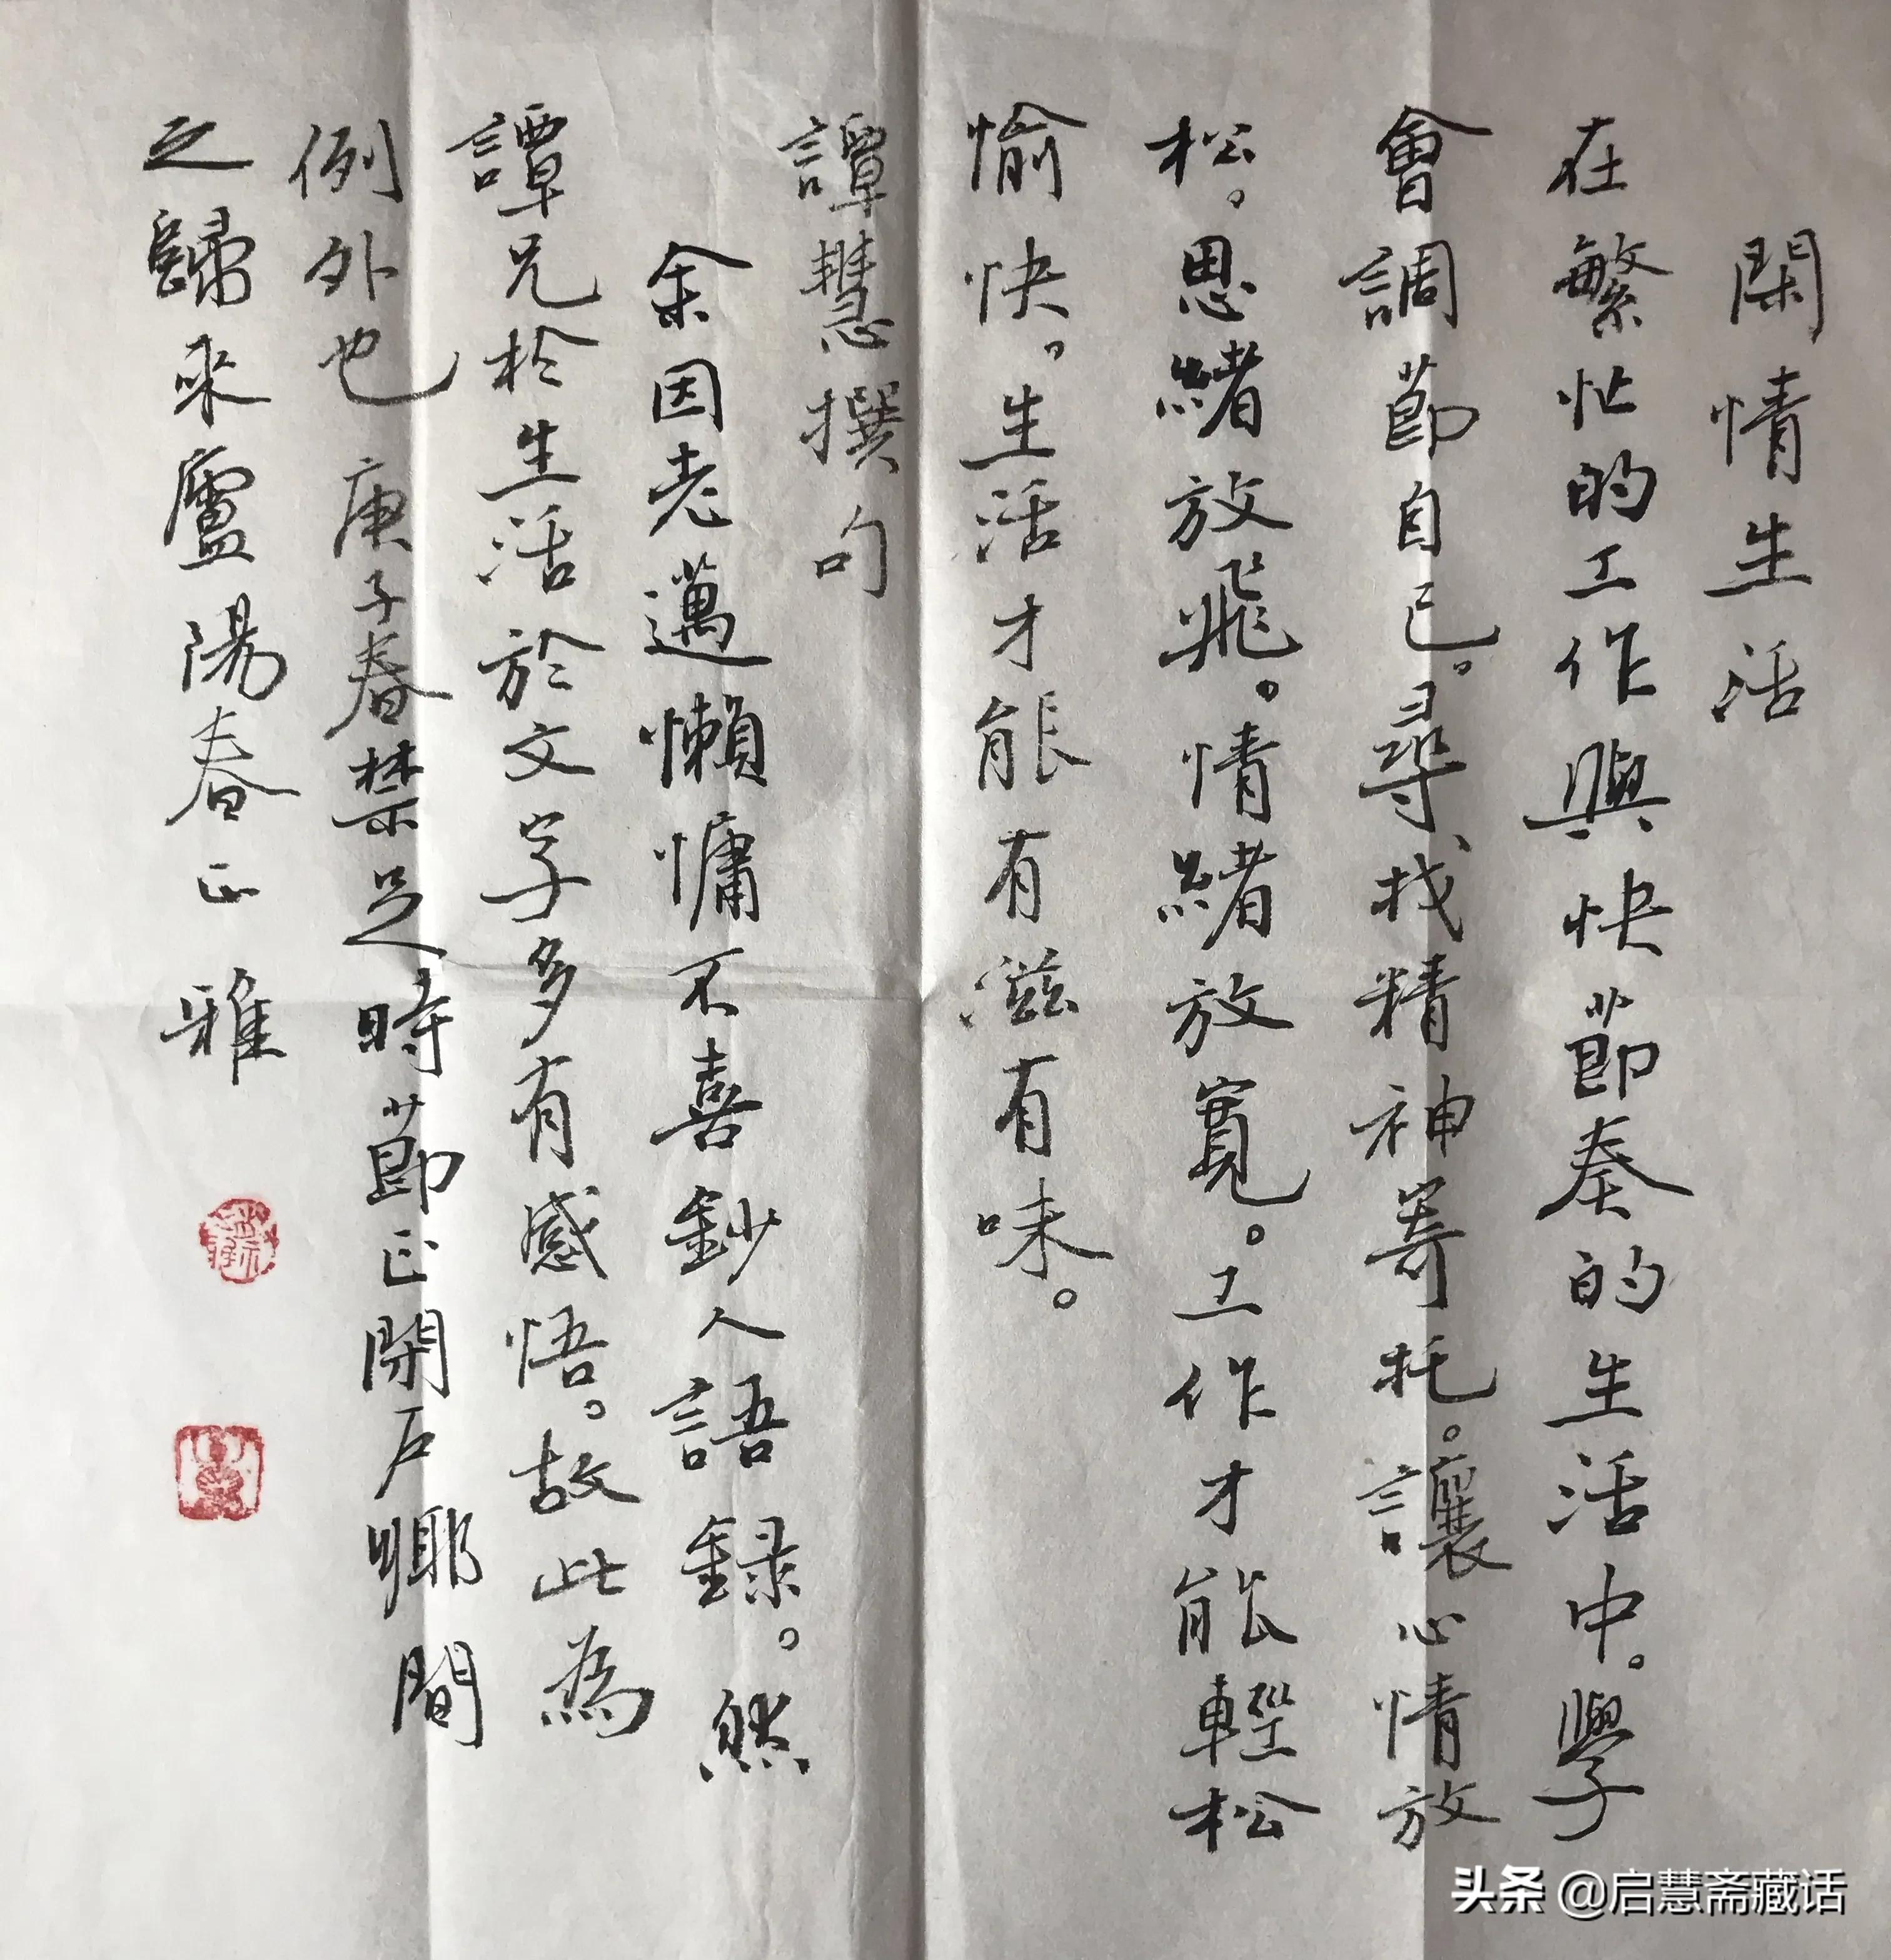 閑情生活
在繁忙的工作與快節奏的生活中。學
會調節自己。尋找精神寄托。讓心情放
松。思緒放飛。情緒放寬。工作才能輕松
愉快。生活才能有滋有味。
譚慧撰句
余因老邁懶慵不喜鈔人語録。然
譚兄於生活於文字多有感悟。故此為
例外也 庚子春禁足時節正閉戶
之歸來廬陽春正雅
头条 @启慧斋藏话